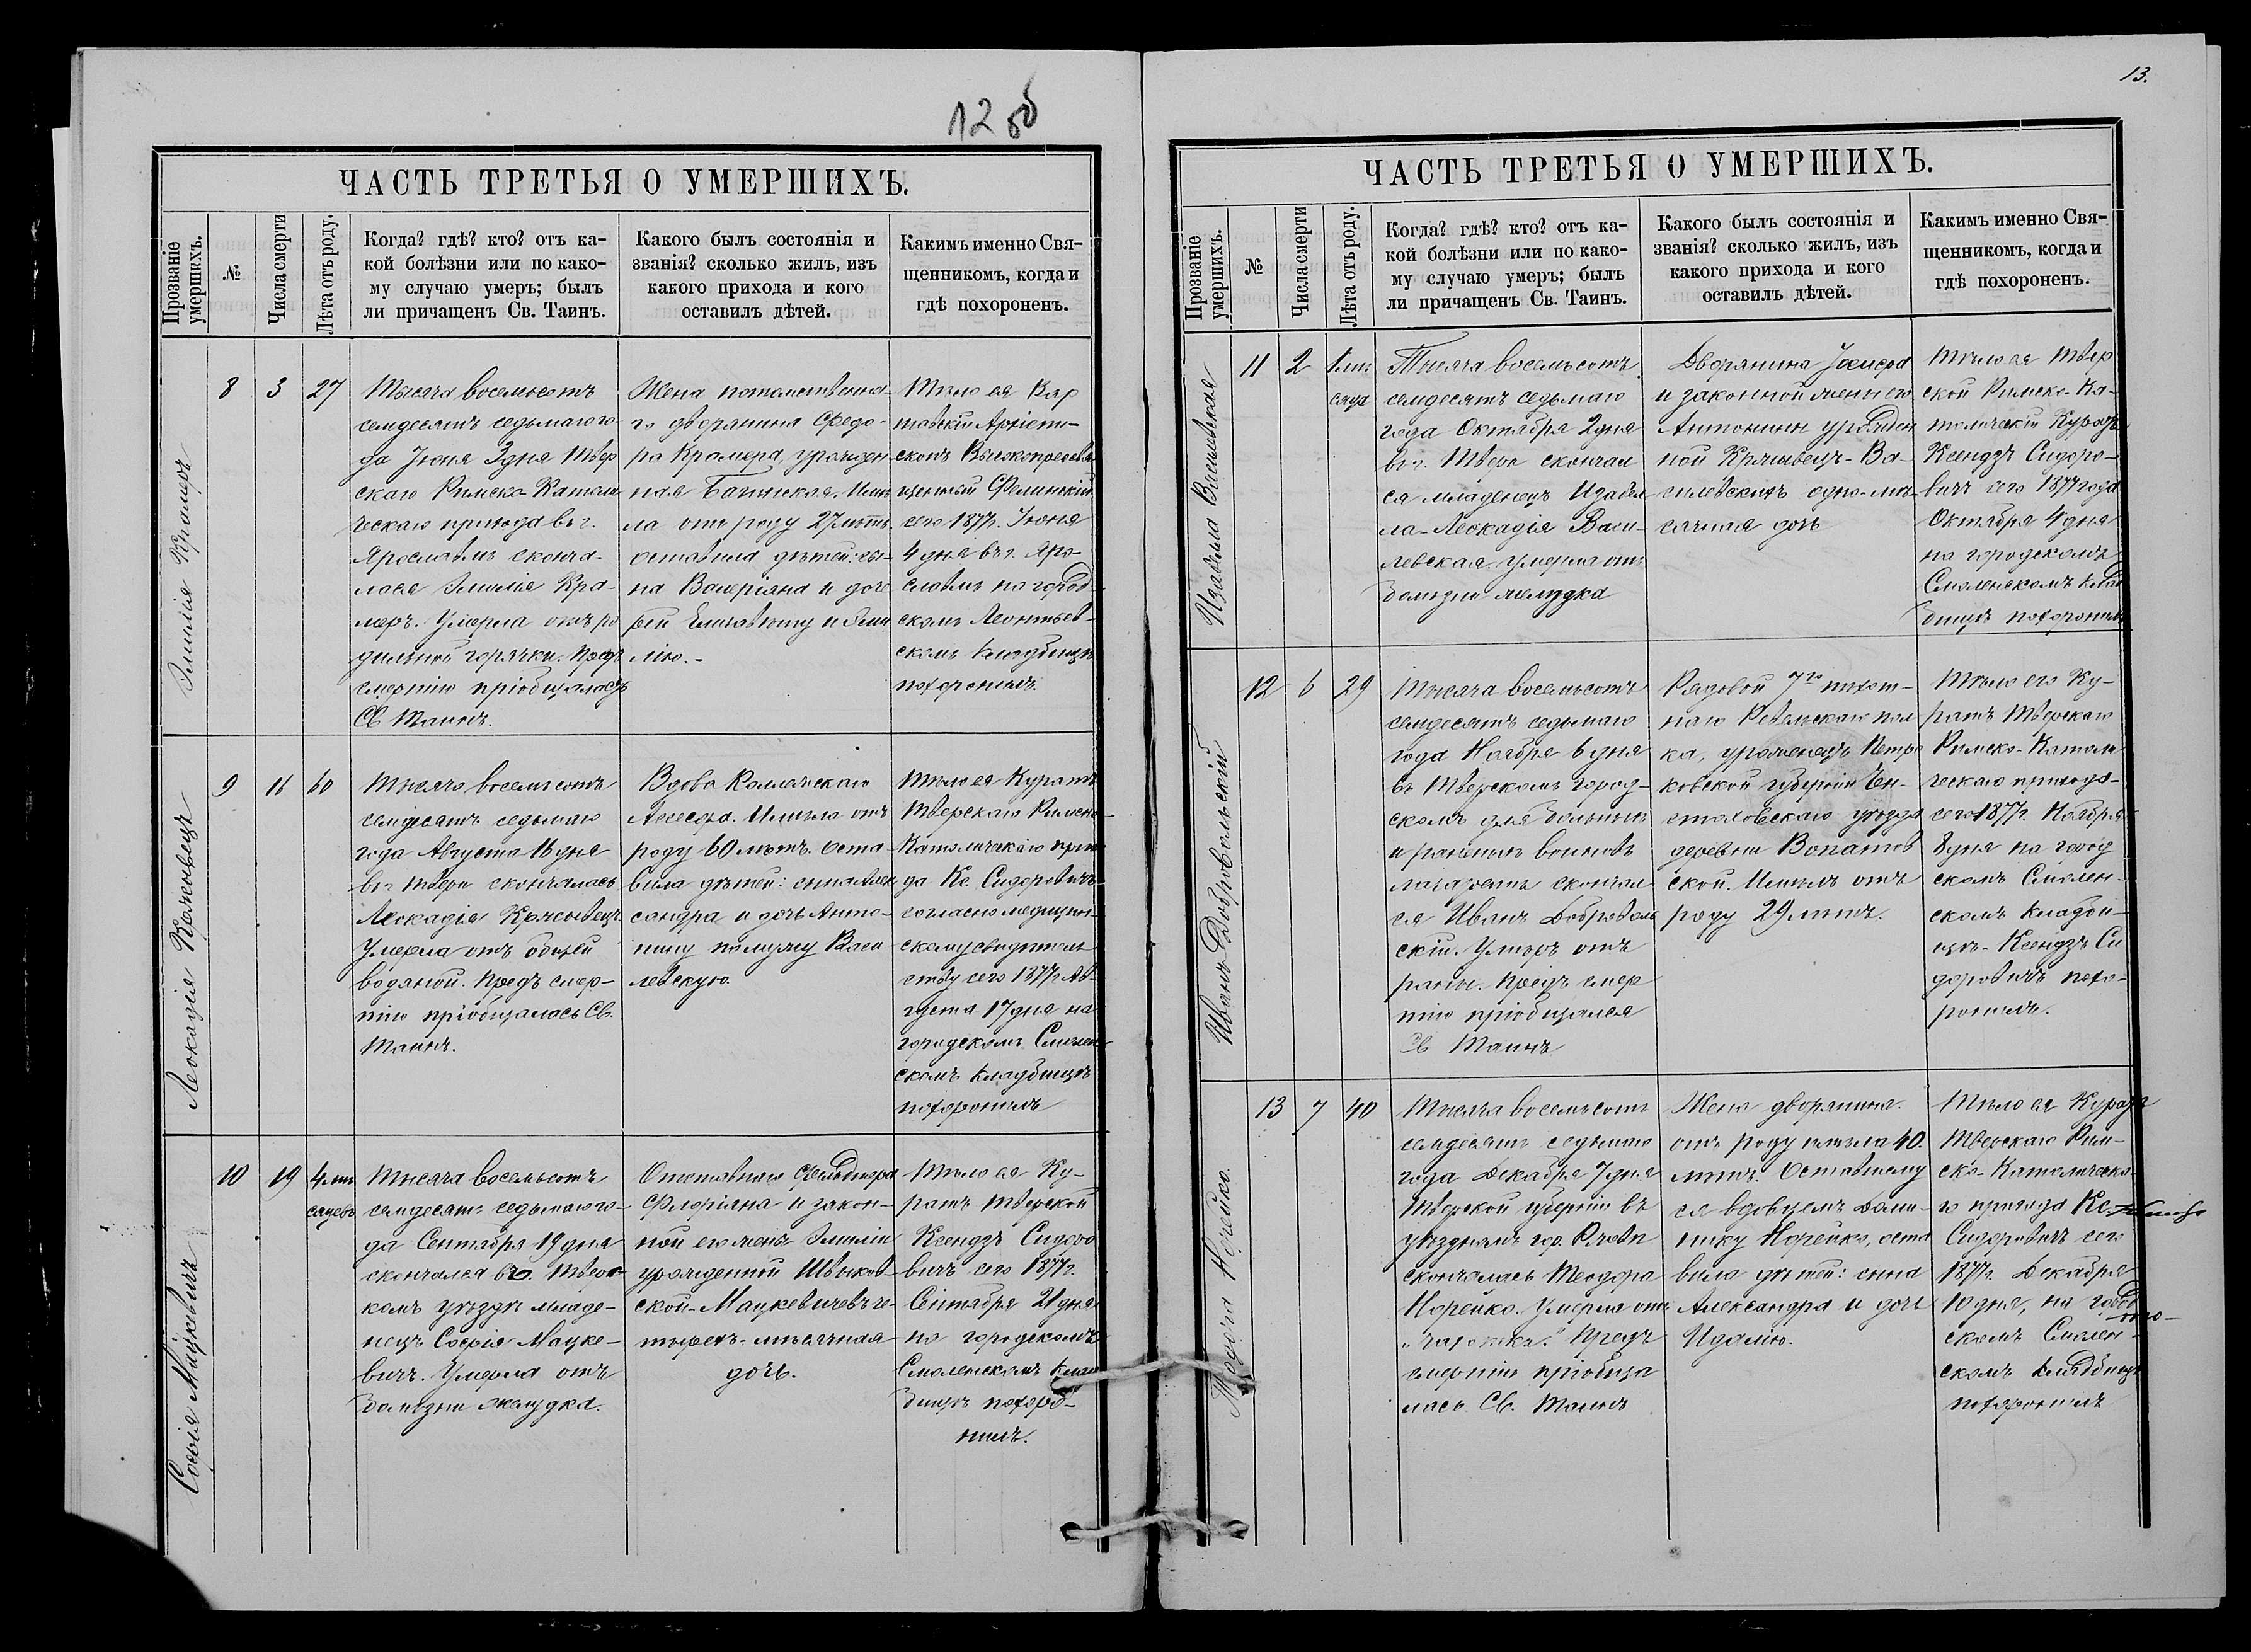 12 об
ЧАСТЬ ТРЕТЬЯ О УМЕРШИХЪ.
Прозваніе
умершихъ.
№
Числа смерти
Лѣта отъ роду.
Когда? гдѣ? кто? отъ ка-
кой болѣзни или по како-
му случаю умеръ; былъ
ли причащенъ Св. Таинъ.
Какого былъ состоянія и
званія? сколько жилъ, изъ
какого прихода и кого
оставилъ дѣтей.
Какимъ именно Свя-
щенникомъ, когда и
гдѣ похороненъ.
Эмилія Крамеръ
8
3
27
Тысяча восемьсотъ
семдесятъ седьмаго го-
да Іюня 3 дня Твер
скаго Римско-Католи
ческаго прихода въ г.
Ярославлѣ сконча-
лася Эмилія Кра-
меръ. Умерла отъ ро
дильной горячки. Предъ
смертію пріобщалась
Св Таинъ.
Жена потомственна-
го дворянина Федо-
ра Крамера, урожден
ная Имѣ
ла отъ роду 27 лѣтъ
оставила дѣтей: сы-
на Валеріяна и доче
рей Елисавету и Эми
лію.-
Тѣло ея
Архіепи-
скопъ Высокопреосвя
щенный Фелинскій
сего 1877г. Іюня
4 дня въ г. Яро-
славлѣ на город
скомъ Леонтьев-
скомъ кладбищѣ
похоронилъ.
Леокадія
9
16
60
Тысяча восемьсотъ
семдесятъ седьмаго
года Августа 16 дня
въ г Твери скончалась
Леокадія
Умерла отъ общей
водяной. Предъ смер-
тію пріобщалась Св.
Таинъ.
Вдова Коллежскаго
Ассесора. Имѣла отъ
роду 60 лѣтъ. Оста
вила дѣтей: сына Алек
сандра и дочь Анто-
нину по мужу Васи
левскую.
Тѣло ея Куратъ
Тверскаго Римско-
Католическаго прихо
да Кс. Сидоровичъ
согласно медицин-
скому свидѣтель
ству сего 1877г. Ав-
густа 17 дня на
городскомъ Смолен
скомъ кладбищѣ
похоронилъ
Софія Мацкевичъ
10
19
4 мѣ
сяцевъ
Тысяча восемьсотъ
семдесятъ седьмаго го-
да Сентября 19 дня
скончался въ Твер
комъ уѣздѣ младе-
нецъ Софія Мацке-
вичъ. Умерла отъ
болѣзни желудка.
Отставнаго фельдшера
Флоріяна и закон-
ной его жены Эмиліи
урожденной Швыков
ской-Мацкевичевъ че-
тырехъ-мѣсячная
дочь.
Тѣло ея Ку-
ратъ Тверской
Ксендзъ Сидоро
вичъ сего 1877г.
Сентября 21 дня
на городскомъ
Смоленскомъ клад
бищѣ похоро-
нилъ.
13.
ЧАСТЬ ТРЕТЬЯ О УМЕРШИХЪ.
Прозваніе
умершихъ.
№
Числа смерти
Лѣта отъ роду.
Когда? гдѣ? кто? отъ ка-
кой болѣзни или по како-
му случаю умеръ; былъ
ли причащенъ Св. Таинъ.
Какого былъ состоянія и
званія? сколько жилъ, изъ
какого прихода и кого
оставилъ дѣтей.
Какимъ именно Свя-
щенникомъ, когда и
гдѣ похороненъ.
Изабелла Василевская
11
2
1 мѣ
сяца
Тысяча восемьсотъ
семдесятъ седьмаго
года Октября 2 дня
въ г. Твери скончал
ся младенецъ Изабел
ла-Леокадія Васи-
левская. Умерла отъ
болѣзни желудка
Дворянина
и законной жены его
Антонины урожден
ной Ва-
силевскихъ одно-мѣ-
сячная дочь
Тѣло ея Твер
ской Римско-Ка-
толическій Куратъ
Ксендзъ Сидоро-
вичъ сего 1877 года
Октября 4 дня
на городскомъ
Смоленскомъ клад
бищѣ похоронилъ
Иванъ Добровольскій
12
6
29
Тысяча восемьсотъ
семдесятъ седьмаго
года Ноября 6 дня
въ Тверскомъ город-
скомъ для больныхъ
и раненыхъ воиновъ
лазаретѣ скончал
ся Иванъ Доброволь
скій. Умеръ отъ
раны. Предъ смер
тію пріобщался
Св Таинъ
Рядовой 7го пѣхот-
наго Ревельскаго пол
ка, уроженецъ Петро
ковской губерніи Чен-
стоховскаго уѣзда
деревни
ской. Имѣлъ отъ
роду 29 лѣтъ.
Тѣло его Ку-
ратъ Тверскаго
Римско-Католи
ческаго прихода-
сего 1877г. Ноября
8 дня на город
скомъ Смолен-
скомъ кладби-
щѣ- Ксендзъ Си
доровичъ похо-
ронилъ.
Теодора Норейко
13
7
40
Тысяча восемьсотъ
семдесятъ седьмаго
года Декабря 7 дня
Тверской губерніи въ
уѣздномъ гор. Ржевѣ
скончалась Теодора
Норейко. Умерла отъ
„чахотки." Предъ
смертію пріобща
лась Св. Таинъ
Жена дворянина.
отъ роду имѣла 40.
лѣтъ. Оставшему
ся вдовцемъ Доми-
нику Норейко, оста
вила дѣтей: сына
Александра и дочь
Идалію.
Тѣло ея Куратъ
Тверскаго Рим-
ско-Католическа-
го прихода Кс.
Сидоровичъ сего
1877г. Декабря
10 дня, на город
скомъ Смолен-
скомъ кладбищѣ
похоронилъ